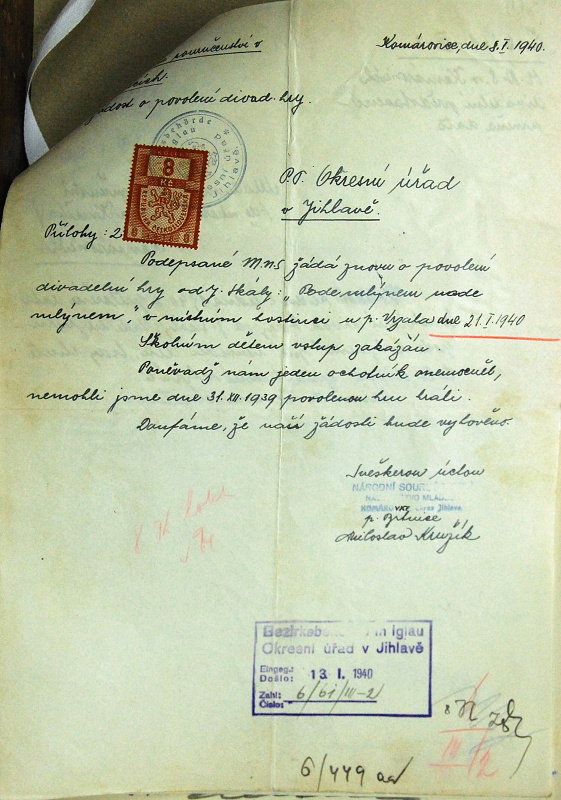 Komárovice, dne 8.I.1940.
poručenství v
žádost o povolení divad. hry.
8
Kč
ČESKOSLOVENSKÁ
8 8
Jihlavě
P.T. Okresní úřad
v Jihlavě.
Přílohy: 2
Podepsané M.n.S žádá znovu o povolení
divadelní hry od J. Skály: „Pode mlýnem nade
mlýnem" v místním hostinci u p. Vrzala dne 21.I.1940
Školním dětem vstup zakázán.
Poněvadž nám jeden ochotník onemocněl,
nemohli jsme dne 31.XII.1939 povolenou hru hráti.
Doufáme, že naší žádosti bude vyhověno.
Sveškerou úctou
NÁRODNÍ SOUR
MLÁD
KOMÁRO VICE okres Jihlava
p. Brtnice
Miloslav Kružík
8 K kolek
Bezirksbe in Iglau
Okresní úřad v Jihlavě
Eingeg.:
Došlo: 13 I. 1940
Zahl:
Číslo: 6/61/III-2
III/2
6/449 ad